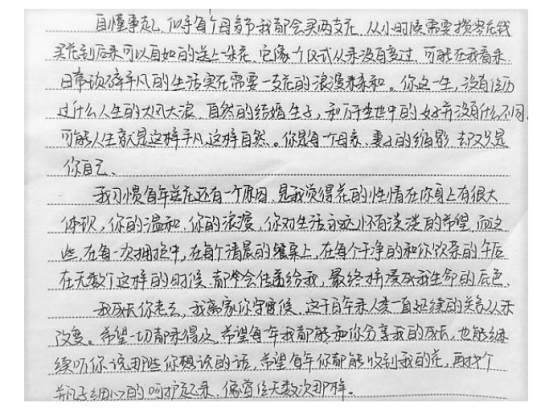 自懂事起，似乎每个母亲节我都会买两支花，从小时候需要攒零花钱
买花到后来可以自如的送上一朵花，它像个仪式从来没有变过，可能在我看来，
日常琐碎平凡的生活实在需要一支花的浪漫来柔和。你这一生，没有经历
过什么人生的大风大浪，自然的结婚生子，和万千尘世中的女子并没有什么不同，
可能人生就是这样平凡，这样自然。你是每个母亲、妻子的缩影，却又只是
你自己。
我习惯每年送花还有一个原因，是我觉得花的性情在你身上有很大
体现，你的温和，你的浪漫，你对生活永远怀有淡淡的希望，而这
些，在每一次拥抱中，在每个清晨的餐桌上，在每个干净的和你饮茶的午后
在无数个这样的时候，都会传递给我，最终拼凑成我生命的底色。
我成长你老去，我离家你守候，这千百年来人类一直延续的关系从未
改变。希望一切都来得及，希望每年我都能和你分享我的成长，也能继
续听你说那些你想说的话，希望每年你都能收到我的花，再找个
花瓶子细心的呵护起来，像曾经无数次那样。